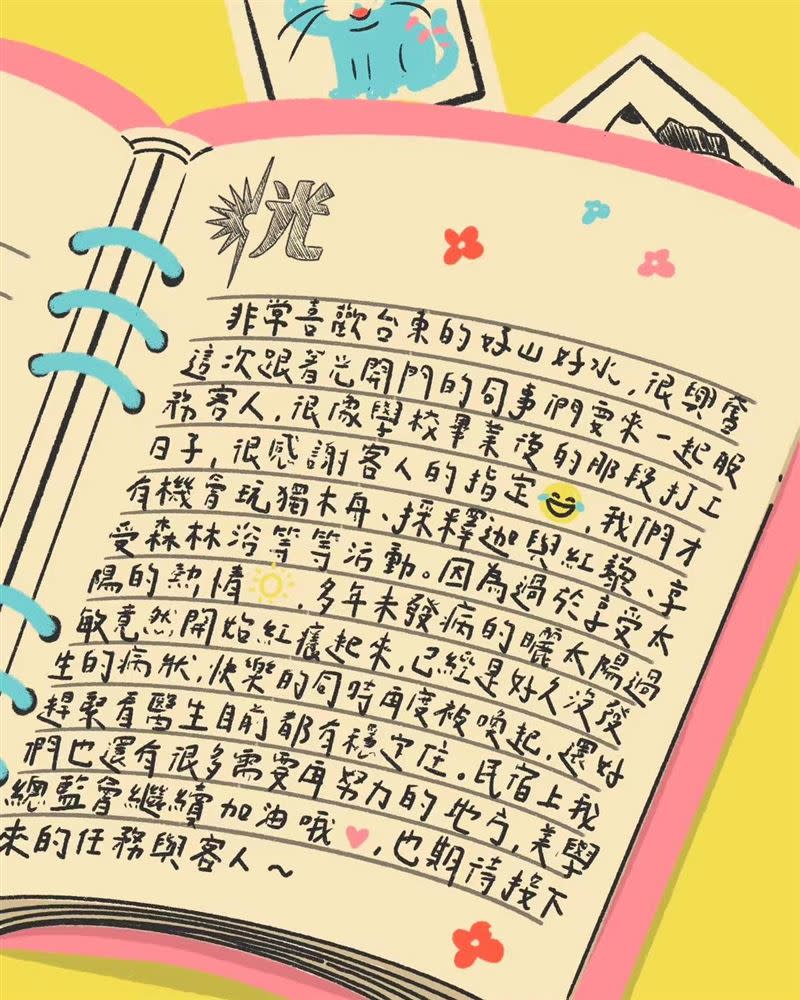 光
非常喜歡台東的好山好水，很興奮
這次跟著光開門的同事們要來一起服
務客人，很像學校畢業後的那段打工
日子，很感謝客人的指定😂，我們才
有機會玩獨木舟、採釋迦與紅藜、享
受森林浴等等活動。因為過於享受太
陽的熱情☀️，多年未發病的曬太陽過
敏竟然開始紅癢起來，已經是好久沒發
生的病狀，快樂的同時再度被喚起，還好
趕緊看醫生目前都有穩定住。民宿上我
們也還有很多需要再努力的地方，美學
總監會繼續加油哦♥，也期待接下
來的任務與客人～